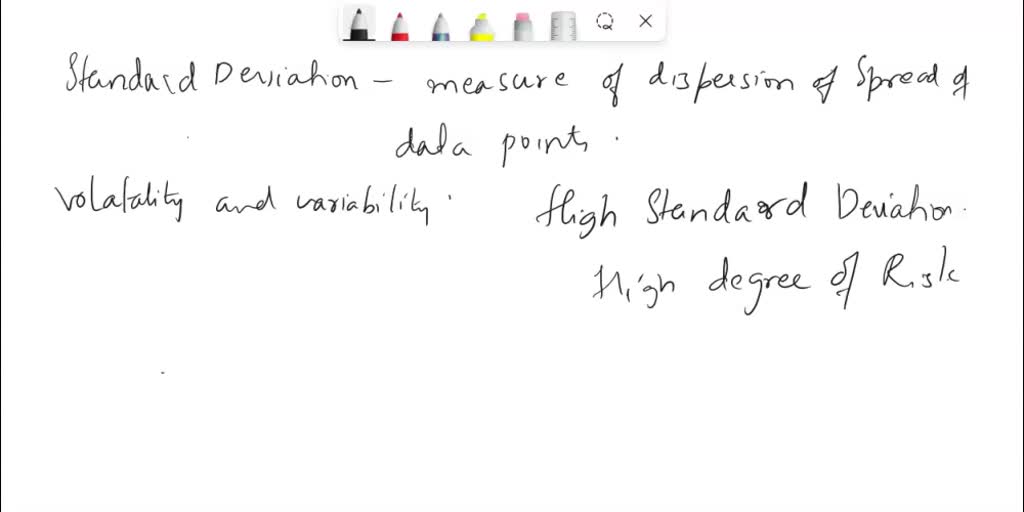 Standard Deviation - measure of dispersion of Spread of
data points.
Volatality and variability.
High Standard Deviation.
High degree of Risk